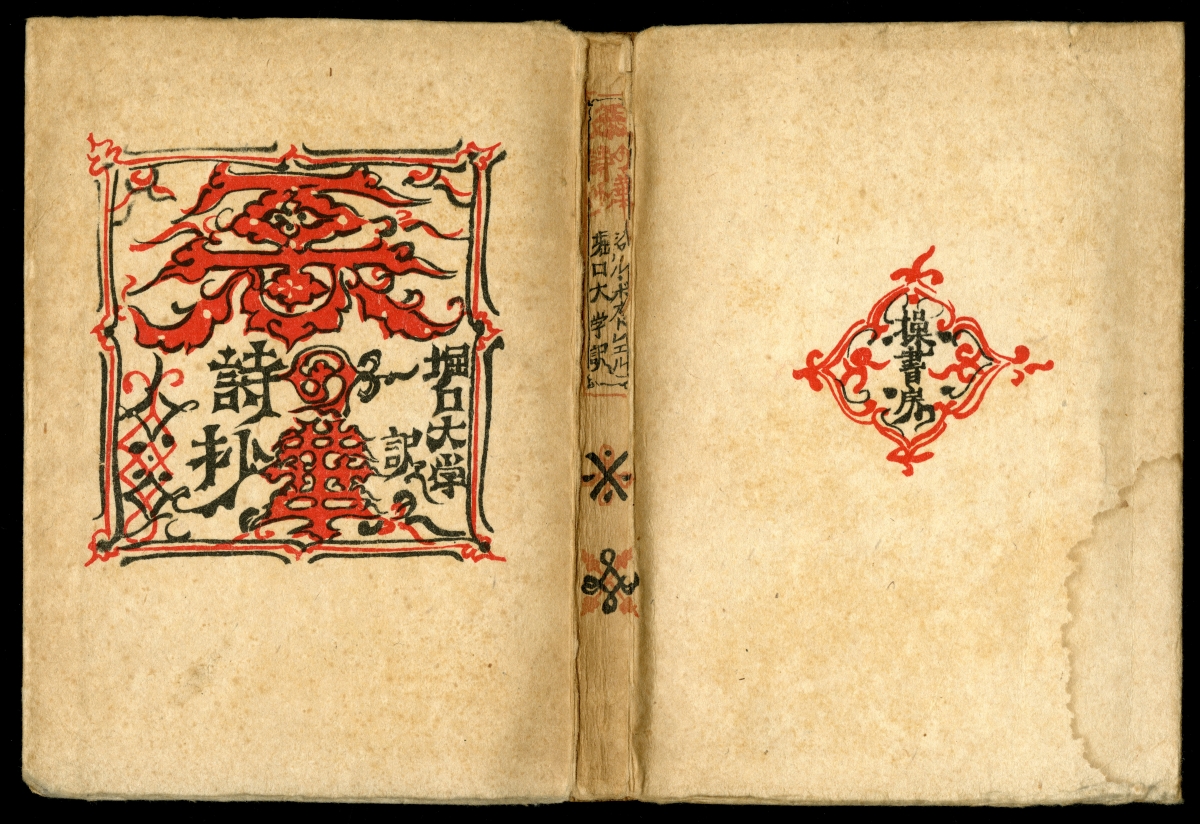 堀口大学
訳
悪の華
詩抄
悪の華
詩抄
シャルル・ボオドレエル
堀口大学訳
操書房